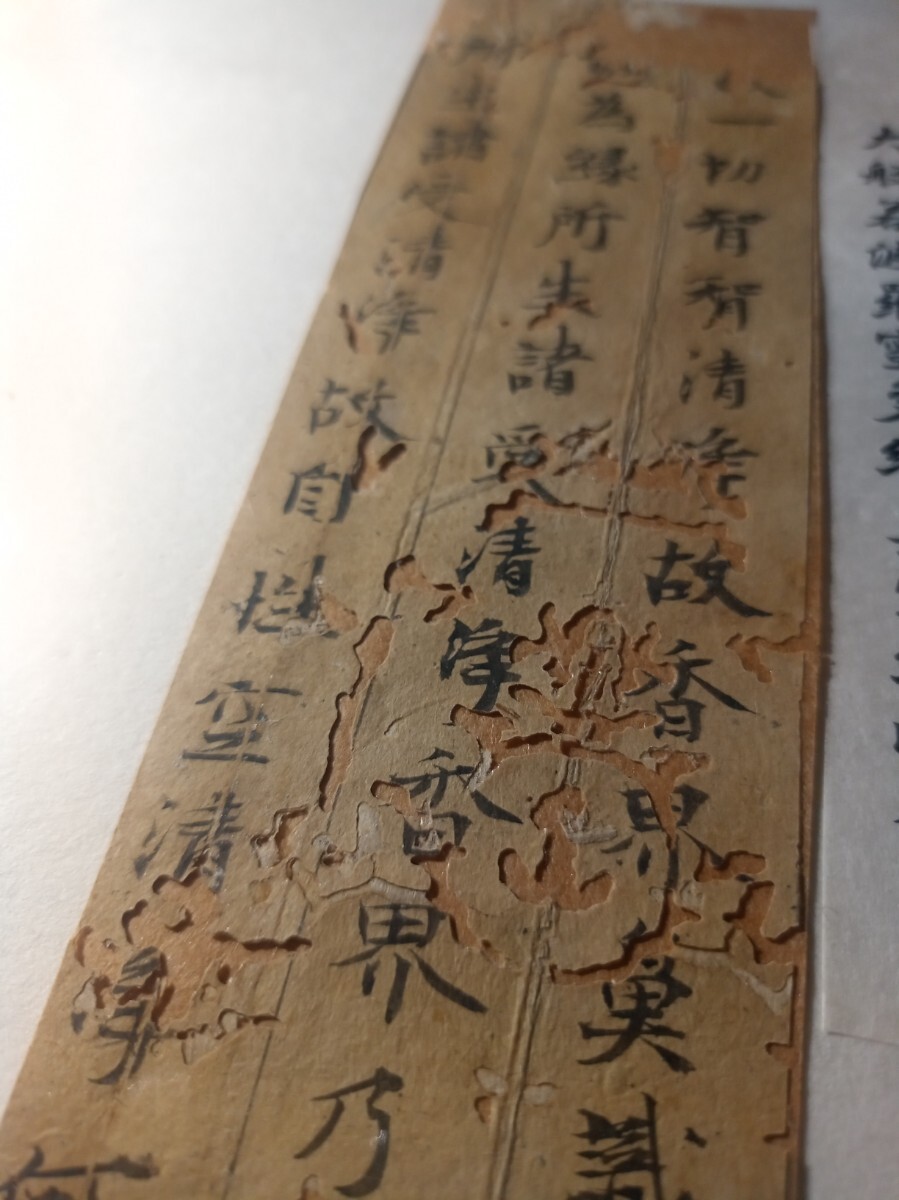 大般若波羅蜜多經
一切智智清淨故香界鼻識
為緣所生諸受清淨香界乃
所生諸受清淨故自性空清淨